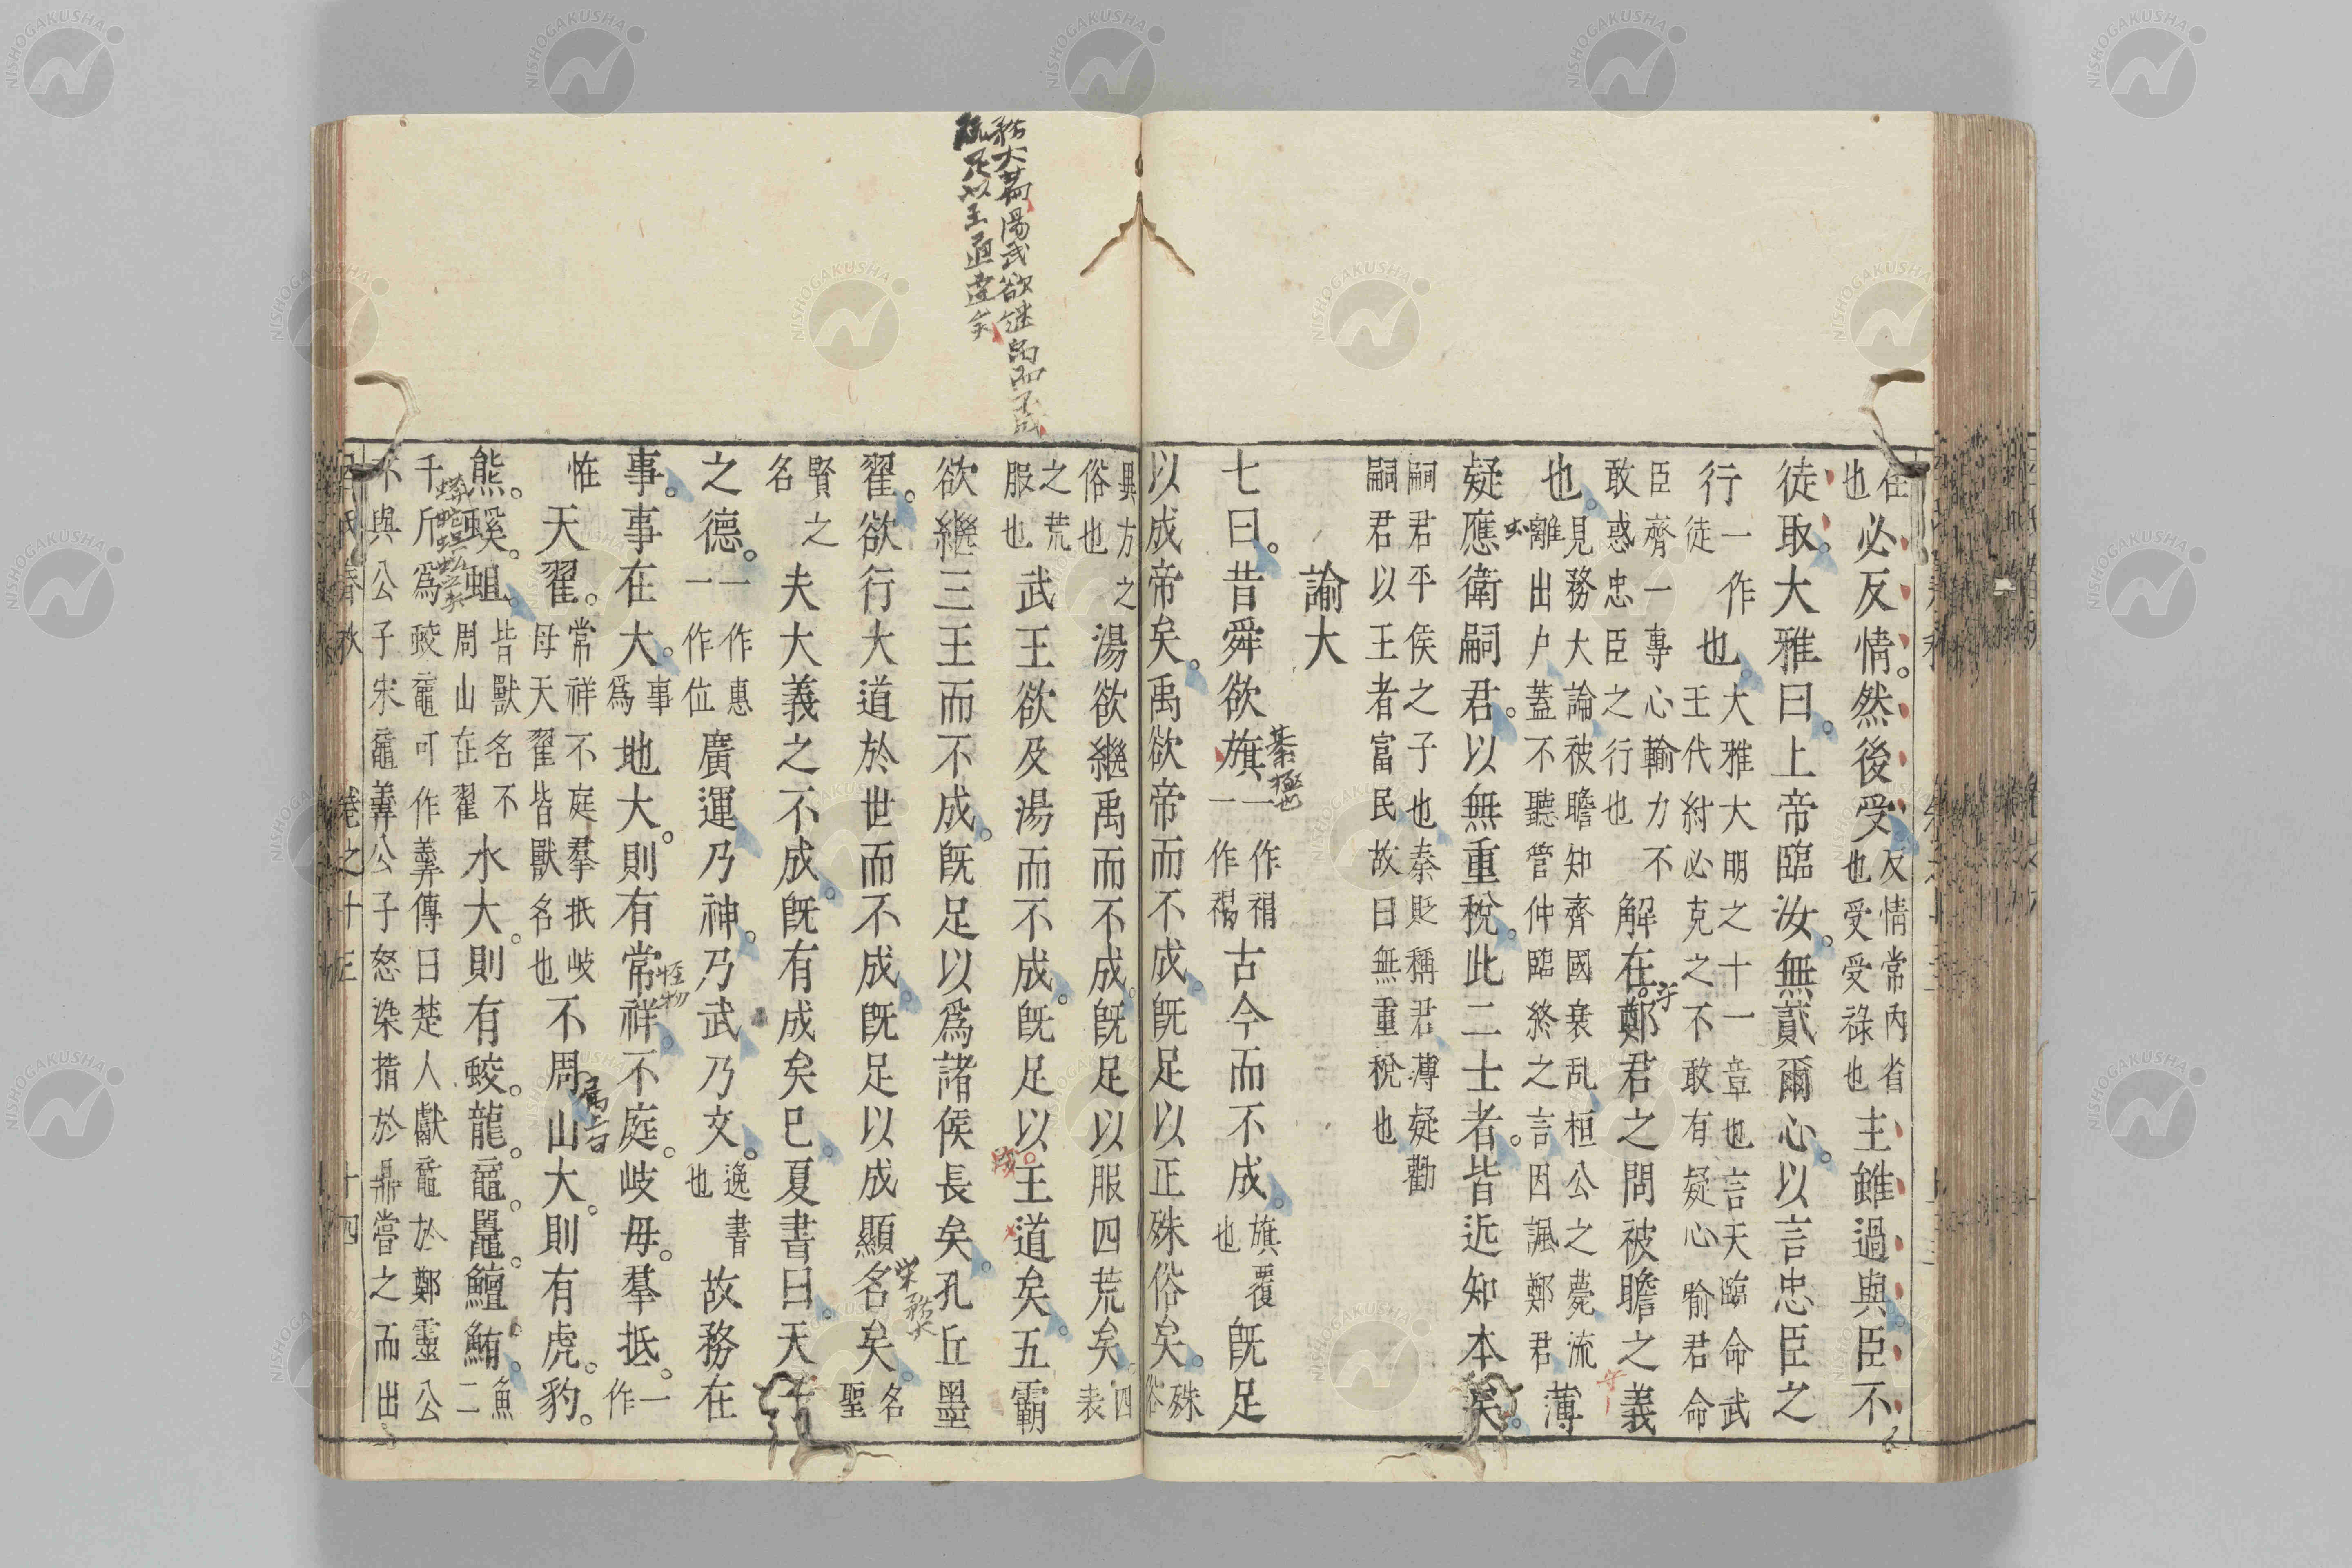 在也必反情。然後受。反情常内省也受受祿也主雖過與臣不
徒取。大雅曰。上帝臨汝。無貳爾心。以言忠臣之
行一作徒也。大雅大明之十一章也言天臨命武王代紂必克之不敢有疑心喻君命
臣齊一專心輸力不敢惑忠臣之行也解在鄭君之問被瞻之義
也。見務大論被瞻知齊國衰乱桓公之薨流離出户蓋不聽管仲臨終之言因諷鄭君薄
疑應衛嗣君。以無重稅。此二士者。皆近知本矣。
嗣君平侯之子也秦貶稱君薄疑勸嗣君以王者富民故曰無重稅也
諭大
七曰。昔舜欲旗一作禂一作禓古今而不成。旗覆也既足
綦極也
以成帝矣。禹欲帝而不成。既足以正殊俗矣。殊俗
務大篇湯武欲継禹而不成
既足以王通達矣
異方之俗也湯欲繼禹而不成。既足以服四荒矣。四表
之荒服也武王欲及湯而不成。既足以王道矣。五霸
欲繼三王而不成。既足以爲諸侯長矣。孔丘墨
翟。欲行大道於世而不成。既足以成顯名矣。名聖
賢之名夫大義之不成。既有成矣已。夏書曰。天子
之德。一作惠一作位廣運乃神。乃武乃文。逸書也故務在
事。事在大。事爲地大。則有常祥。不庭。岐毋。羣抵。一作
怪物
恠天翟。常祥不庭羣抵岐母天翟皆獸名也不周山大。則有虎。豹。
屬上句
熊。螇。蛆。皆獸名不周山在翟水大。則有蛟。龍。黿。鼉。鱣。鮪。魚二
千斤爲蛟黿可作羹傳曰楚人獻黿於鄭靈公
不與公子宋黿羹公子怒染指於鼎嘗之而出
呂氏春秋 卷之十三 十四